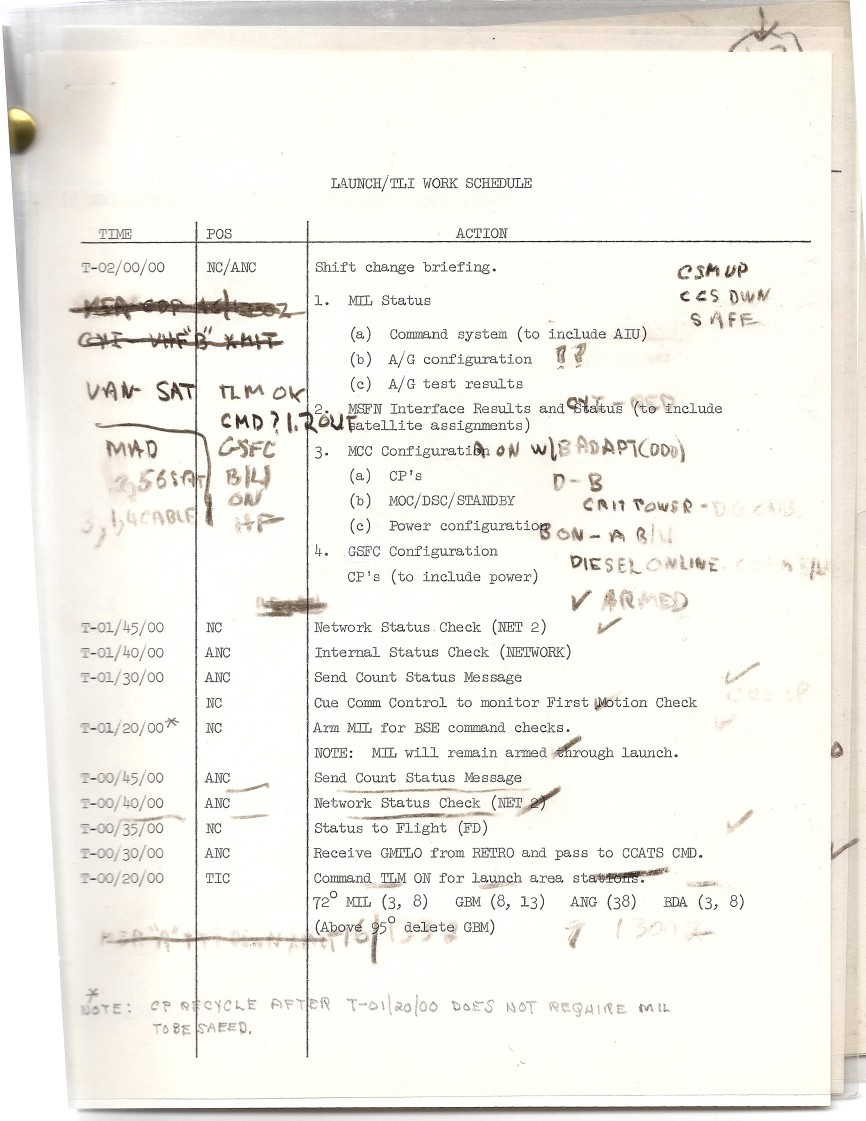 LAUNCH/TLI WORK SCHEDULE
TIME POS ACTION
T-02/00/00 NC/ANC Shift change briefing.
CSM UP
CCS DWN
SAFE
1. MIL Status
(a) Command system (to include AIU)
(b) A/G configuration ??
(c) A/G test results
VAN- SAT TLM OK
CMD ?
2. MSFN Interface Results and Status (to include
satellite assignments)
MAD GSFC
B/U
ON
HF
3. MCC Configuration
A ON W/B ADAPT(ODD)
(a) CP's
D-B
(b) MOC/DSC/STANDBY
CRIT POWER -
(c) Power configuration
B ON - A B/U
4. GSFC Configuration
DIESEL ONLINE
CP's (to include power)
✓ ARMED
T-01/45/00 NC Network Status Check (NET 2) ✓
T-01/40/00 ANC Internal Status Check (NETWORK)
T-01/30/00 ANC Send Count Status Message ✓
NC Cue Comm Control to monitor First Motion Check
T-01/20/00* NC Arm MIL for BSE command checks. ✓
NOTE: MIL will remain armed through launch.
T-00/45/00 ANC Send Count Status Message
T-00/40/00 ANC Network Status Check (NET 2)
T-00/35/00 NC Status to Flight (FD) ✓
T-00/30/00 ANC Receive GMTLO from RETRO and pass to CCATS CMD.
T-00/20/00 TIC Command TLM ON for launch area stations.
72° MIL (3, 8) GBM (8, 13) ANG (38) BDA (3, 8)
(Above 95° delete GBM)
*
NOTE: CP RECYCLE AFTER T-01/20/00 DOES NOT REQUIRE MIL
TO BE SAFED.